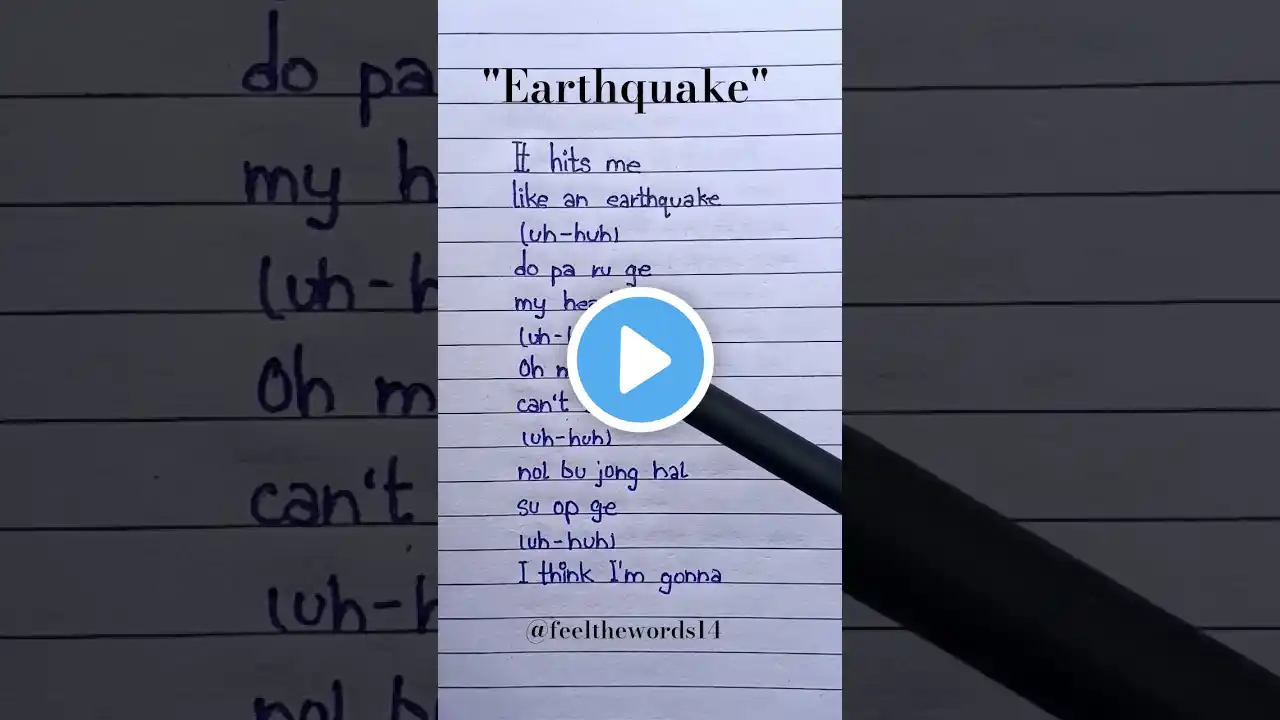 "Earthquake"
It hits me
like an earthquake
(uh-huh)
do pa ru ge
my
(uh-
Oh
can't
(uh-huh)
nol bu jong hal
su op ge
(uh-huh)
I think I'm gonna
@feelthewords14
do pa
my h
(uh-h
Oh m
can't
(uh-h
nol b